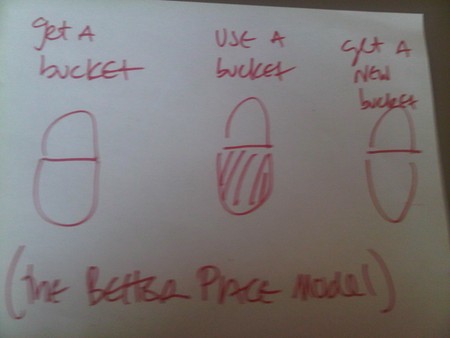 get A
bucket
USE A
bucket
get A
NEW
bucket
(the Better Place Model)